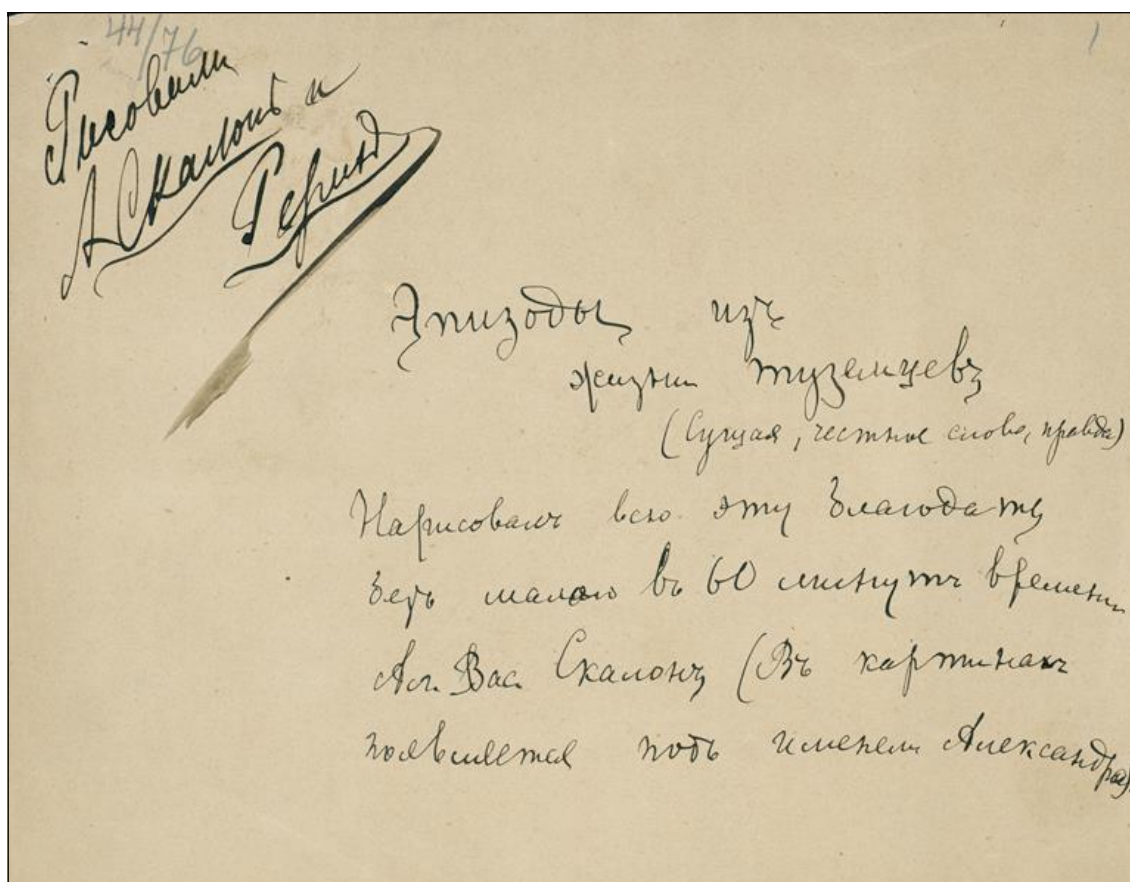 44/76
1
Рисовали
А Скалонъ и
Рерихъ
Эпизоды изъ
жизни туземцевъ
(Сущая, честное слово, правда)
Нарисовалъ всю эту благодать
безъ малаго въ 60 минутъ времени
Ал. Вас. Скалонъ (Въ картинахъ
появляется подъ именемъ Александра).